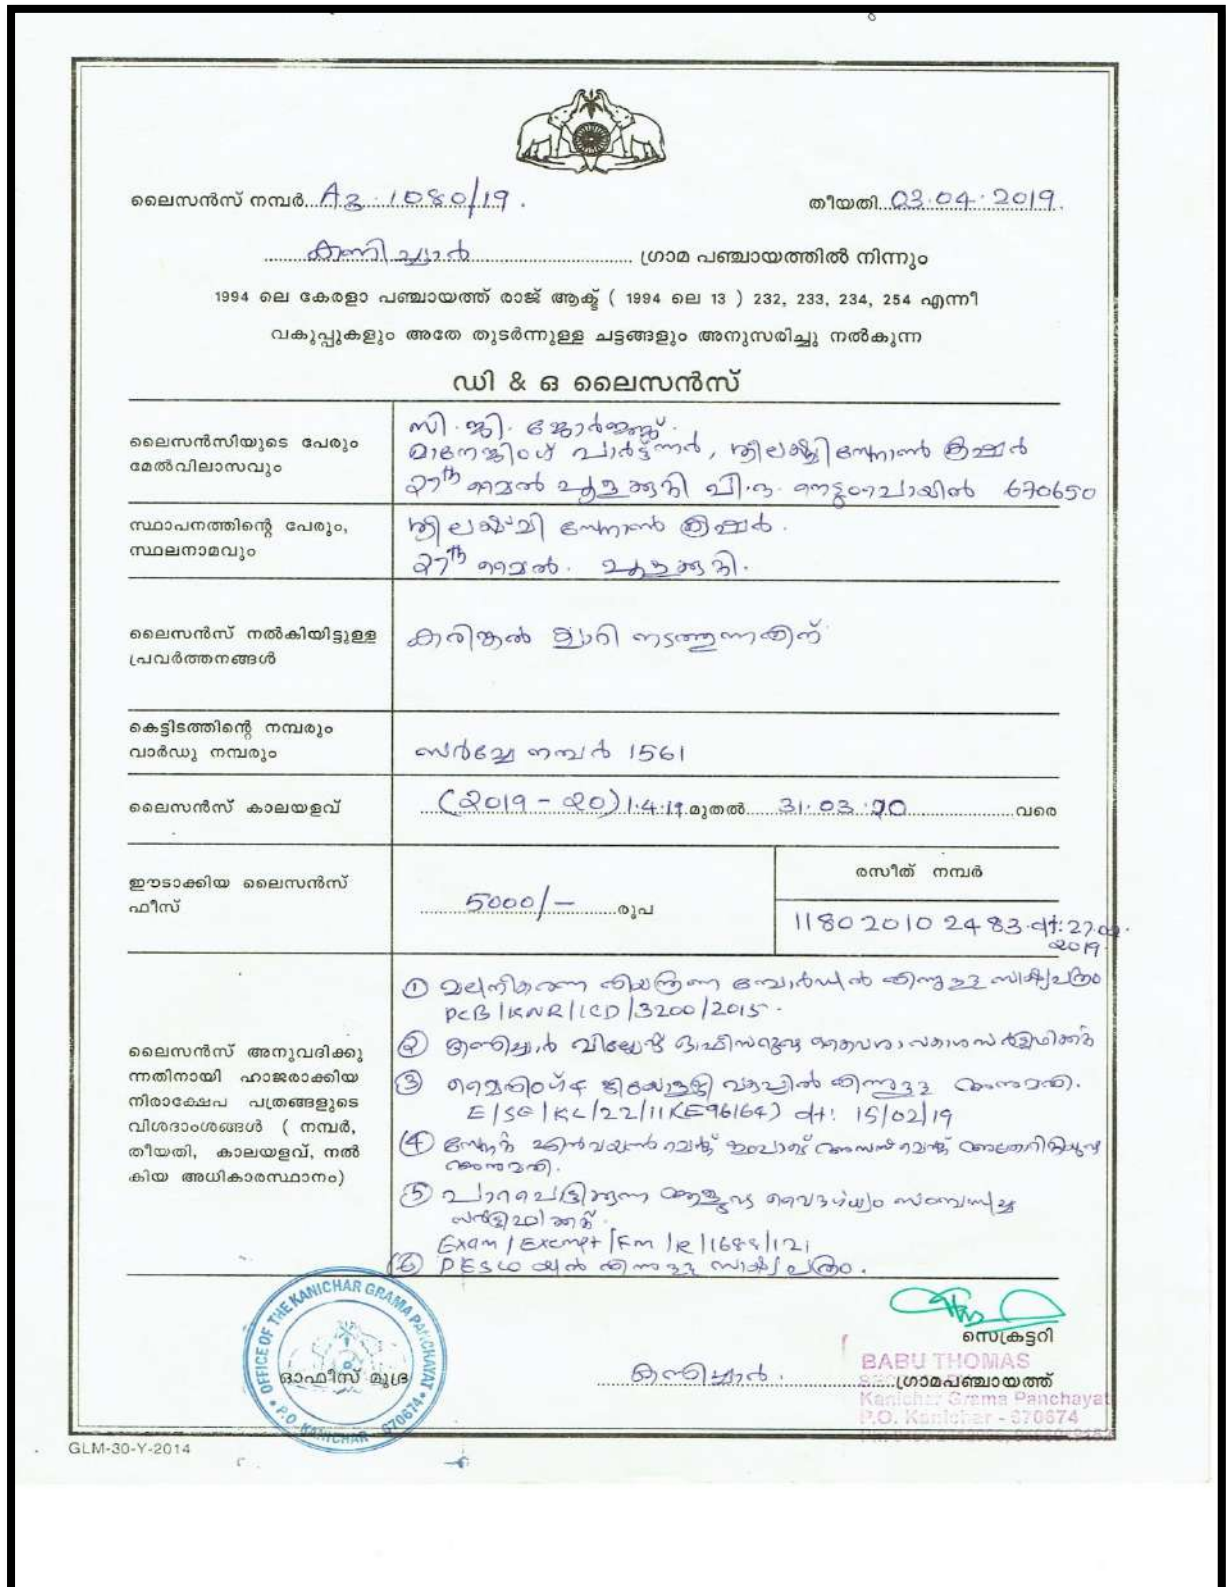 ലൈസൻസ് നമ്പർ A3-1080/19. തീയതി 03.04.2019.
കണിച്ചാർ ഗ്രാമ പഞ്ചായത്തിൽ നിന്നും
1994 ലെ കേരളാ പഞ്ചായത്ത് രാജ് ആക്ട് ( 1994 ലെ 13 ) 232, 233, 234, 254 എന്നീ
വകുപ്പുകളും അതേ തുടർന്നുള്ള ചട്ടങ്ങളും അനുസരിച്ചു നൽകുന്ന
ഡി & ഒ ലൈസൻസ്
ലൈസൻസിയുടെ പേരും
മേൽവിലാസവും
സി.ജി. ജോർജ്ജ്.
മാനേജിംഗ് പാർട്ട്ണർ, ശ്രീലക്ഷ്മി സ്റ്റോൺ ക്രഷർ
27th മൈൽ പൂളക്കുറ്റി പി.ഒ. നെടുംപൊയിൽ 670650
സ്ഥാപനത്തിന്റെ പേരും,
സ്ഥലനാമവും
ശ്രീലക്ഷ്മി സ്റ്റോൺ ക്രഷർ.
27th മൈൽ. പൂളക്കുറ്റി.
ലൈസൻസ് നൽകിയിട്ടുള്ള
പ്രവർത്തനങ്ങൾ
കരിങ്കൽ ക്വാറി നടത്തുന്നതിന്
കെട്ടിടത്തിന്റെ നമ്പരും
വാർഡു നമ്പരും
സർവ്വേ നമ്പർ 1561
ലൈസൻസ് കാലയളവ്
(2019-20) 1.4.19 മുതൽ 31.03.20 വരെ
ഈടാക്കിയ ലൈസൻസ്
ഫീസ്
5000/- രൂപ
രസീത് നമ്പർ
118020102483. dt: 27.
2019.
ലൈസൻസ് അനുവദിക്കു
ന്നതിനായി ഹാജരാക്കിയ
നിരാക്ഷേപ പത്രങ്ങളുടെ
വിശദാംശങ്ങൾ ( നമ്പർ,
തീയതി, കാലയളവ്, നൽ
കിയ അധികാരസ്ഥാനം)
① മലിനീകരണ നിയന്ത്രണ ബോർഡിൽ നിന്നുള്ള സാക്ഷ്യപത്രം
PCB/KNR/ICD/3200/2015.
② കണിച്ചാർ വില്ലേജ് ഓഫീസറുടെ കൈവശാവകാശ സർട്ടിഫിക്കറ്റ്
③ മൈനിംഗ് & ജിയോളജി വകുപ്പിൽ നിന്നുള്ള അനുമതി.
E/SE/KL/22/11(E96164) dt: 15/02/19
④ സ്റ്റേറ്റ് എൻവയൺമെന്റ് ഇംപാക്ട് അസസ്മെന്റ് അതോറിറ്റിയുടെ
അനുമതി.
⑤ പാറപൊട്ടിക്കുന്ന ആളുടെ വൈദഗ്ധ്യം സംബന്ധിച്ച
സർട്ടിഫിക്കറ്റ്.
Exam/Exempt/Fm/R/1688/121
⑥ PESCO യിൽ നിന്നുള്ള സാക്ഷ്യപത്രം.
OFFICE OF THE KANICHAR GRAMA PANCHAYAT
P.O. KANICHAR - 670674
ഓഫീസ് മുദ്ര
സെക്രട്ടറി
BABU THOMAS
കണിച്ചാർ. ഗ്രാമപഞ്ചായത്ത്
Kanichar Grama Panchayat
P.O. Kanichar - 670674
GLM-30-Y-2014